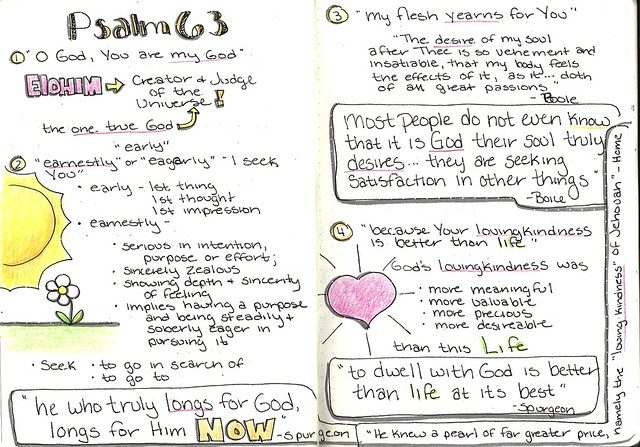 Psalm 63
① "O God, You are my God"
ELOHIM → Creator & Judge
of the
Universe!
the one, true God
"early"
② "earnestly" or "eagarly" "I seek
You"
• early - 1st thing
1st thought
1st impression
• earnestly -
• serious in intention,
purpose or effort;
• sincerely zealous
• showing depth & sincerity
of feeling
• implies having a purpose
and being steadily &
soberly eager in
pursuing it
• Seek • to go in search of
• to go to
"he who truly longs for God,
longs for Him NOW" - Spurgeon
③ "my flesh yearns for You"
"The desire of my soul
after Thee is so vehement and
insatiable, that my body feels
the effects of it, as it... doth
of all great passions"
- Poole
Most people do not even know
that it is God their soul truly
desires... they are seeking
satisfaction in other things"
- Boice
④ "because Your lovingkindness
is better than life"
God's lovingkindness was
• more meaningful
• more valuable
• more precious
• more desireable
than this Life
"to dwell with God is better
than life at its best"
- Spurgeon
"He knew a pearl of far greater price,
namely the "loving kindness" of Jehovah" - Horne